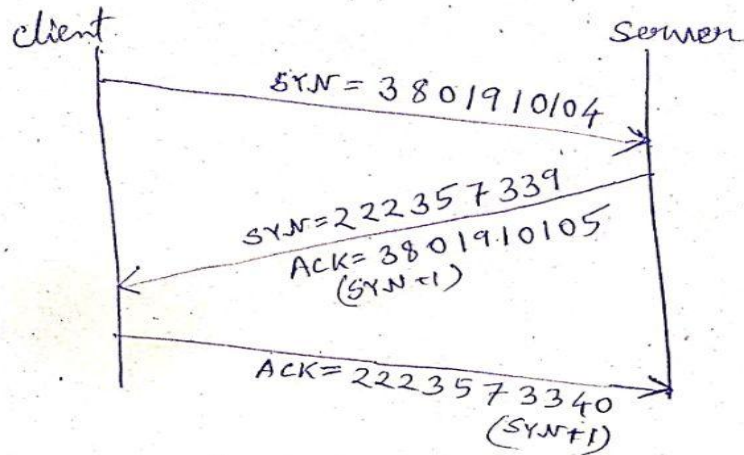 client
Server
SYN = 3801910104
SYN=222357339
ACK= 3801910105
(SYN+1)
ACK= 2223573340
(SYN+1)